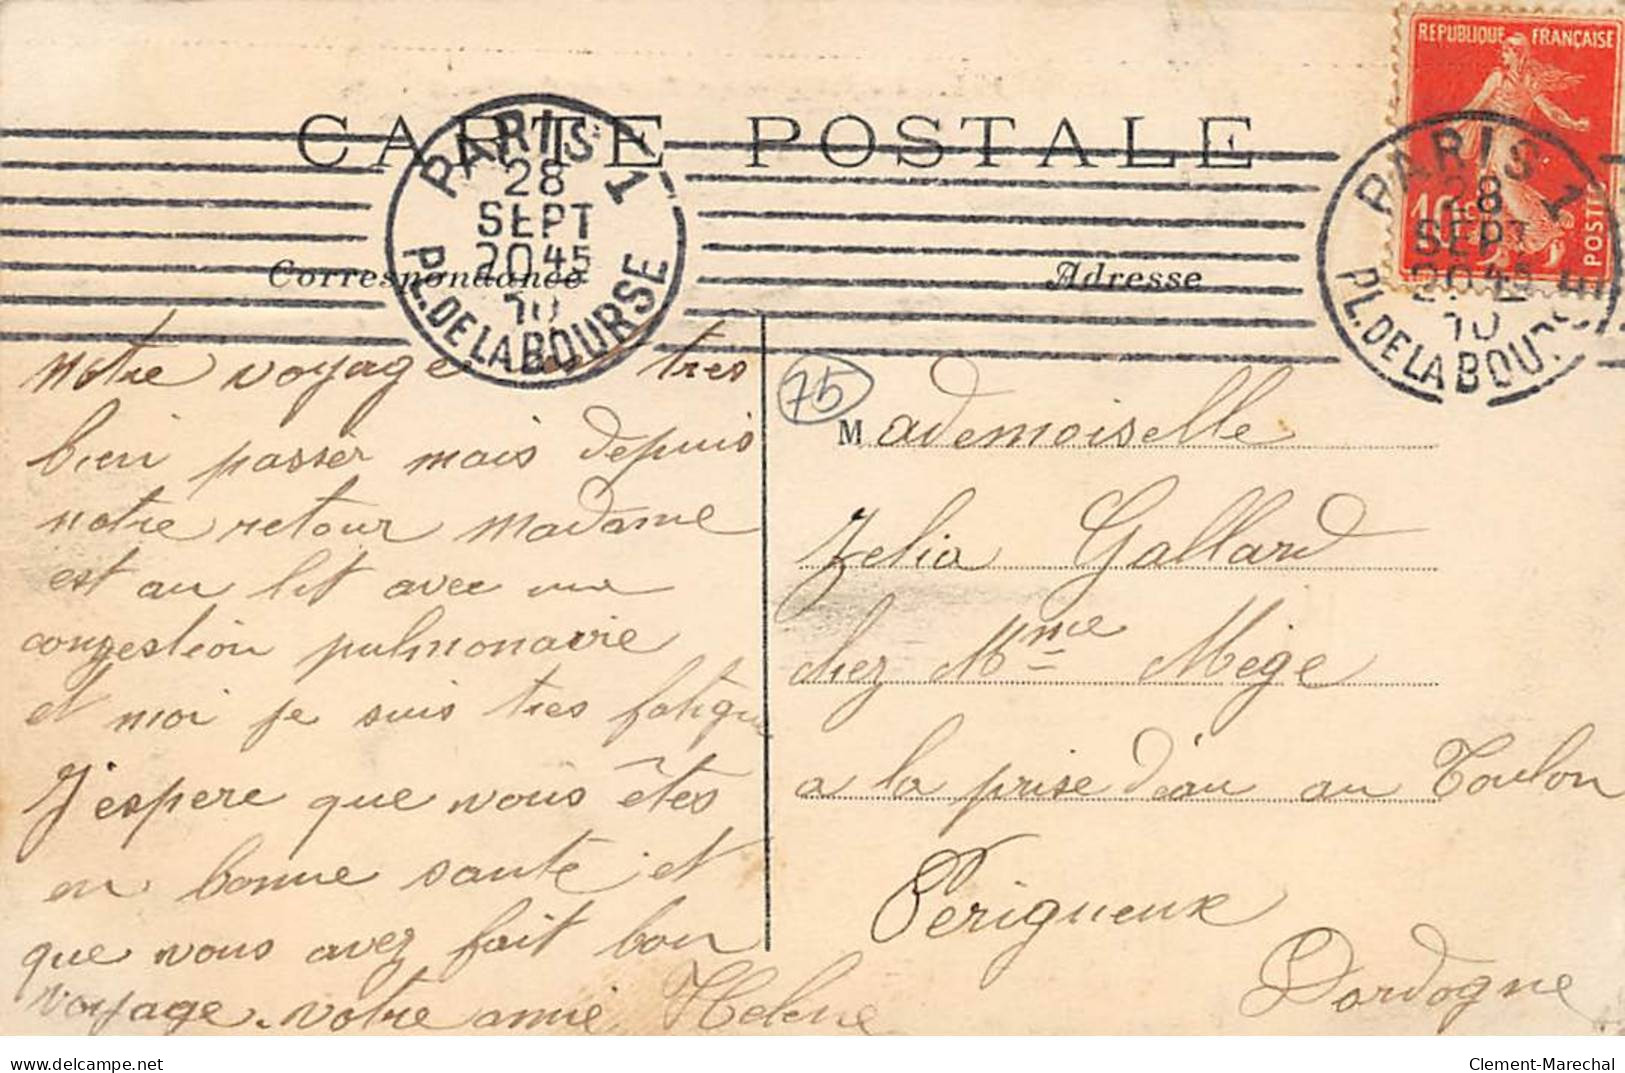 CARTE POSTALE
REPUBLIQUE FRANÇAISE
10c
POSTES
PARIS 1
28
SEPT
20 45
10
PL. DE LA BOURSE
PARIS 1
28
SEPT
20 45
10
PL. DE LA BOURSE
Correspondance
Adresse
75
notre voyage tres
bien passer mais depuis
notre retour Madame
est au lit avec une
congestion pulmonaire
et moi je suis tres fatigue
J'espere que vous êtes
en bonne santé et
que vous avez fait bon
voyage. votre amie Helene
Mademoiselle
Zelia Gallard
chez Mme Mège
a la prise d'eau au Toulon
Perigueux
Dordogne
www.delcampe.net
Clement-Marechal